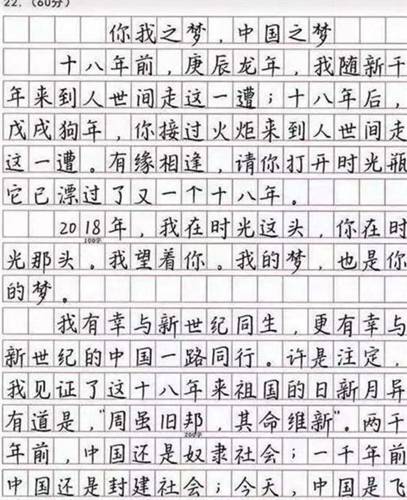 22.（60分）
你我之梦，中国之梦
十八年前，庚辰龙年，我随新千
年来到人世间走这一遭；十八年后，
戊戌狗年，你接过火炬来到人世间走
这一遭。有缘相逢，请你打开时光瓶
它已漂过了又一个十八年。
2018年，我在时光这头，你在时
100字
光那头。我望着你。我的梦，也是你
的梦。
我有幸与新世纪同生，更有幸与
新世纪的中国一路同行。许是注定，
我见证了这十八年来祖国的日新月异
有道是，"周虽旧邦，其命维新"。两千
200字
年前，中国还是奴隶社会；一千年前
中国还是封建社会；今天，中国是飞